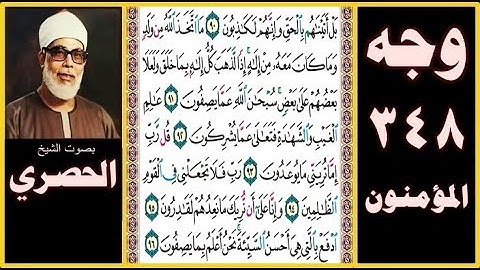 بَلْ أَتَيْنَٰهُم بِٱلْحَقِّ وَإِنَّهُمْ لَكَٰذِبُونَ ٩٠ مَا ٱتَّخَذَ ٱللَّهُ مِن وَلَدٍ
وَمَا كَانَ مَعَهُۥ مِنْ إِلَٰهٍ ۚ إِذًا لَّذَهَبَ كُلُّ إِلَٰهٍۭ بِمَا خَلَقَ وَلَعَلَا
بَعْضُهُمْ عَلَىٰ بَعْضٍ ۚ سُبْحَٰنَ ٱللَّهِ عَمَّا يَصِفُونَ ٩١ عَٰلِمِ
ٱلْغَيْبِ وَٱلشَّهَٰدَةِ فَتَعَٰلَىٰ عَمَّا يُشْرِكُونَ ٩٢ قُل رَّبِّ
إِمَّا تُرِيَنِّى مَا يُوعَدُونَ ٩٣ رَبِّ فَلَا تَجْعَلْنِى فِى ٱلْقَوْمِ
ٱلظَّٰلِمِينَ ٩٤ وَإِنَّا عَلَىٰٓ أَن نُّرِيَكَ مَا نَعِدُهُمْ لَقَٰدِرُونَ ٩٥
ٱدْفَعْ بِٱلَّتِى هِىَ أَحْسَنُ ٱلسَّيِّئَةَ ۚ نَحْنُ أَعْلَمُ بِمَا يَصِفُونَ ٩٦
وجه
٣٤٨
المؤمنون
بصوت الشيخ
الحصري